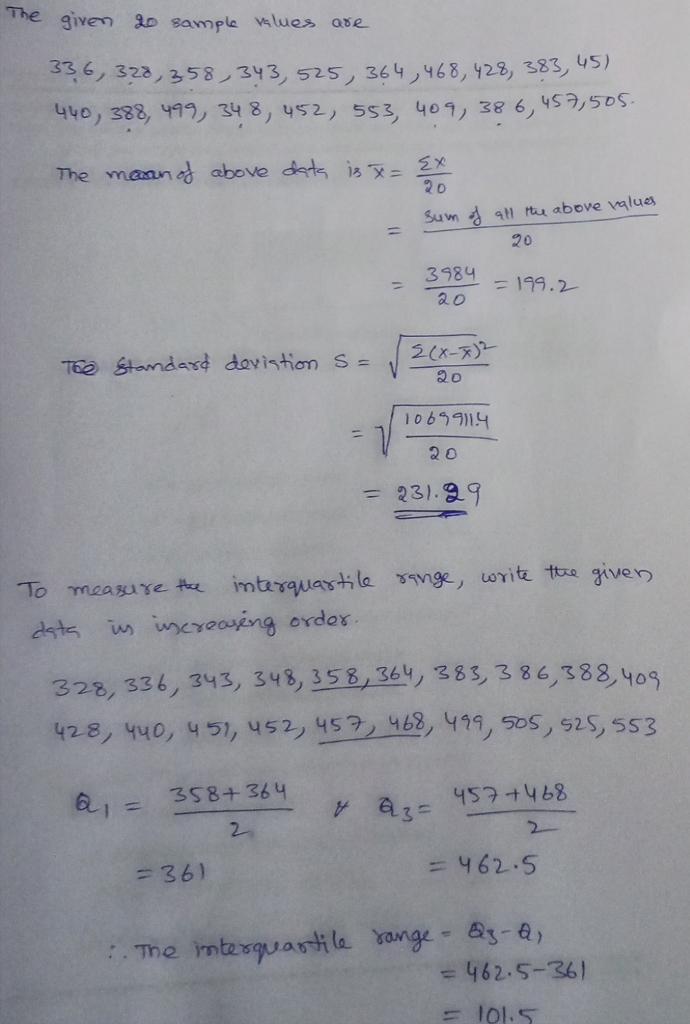 The given 20 sample values are
336, 328, 358, 343, 525, 364, 468, 428, 383, 451
440, 388, 499, 348, 452, 553, 409, 386, 457, 505.
The mean of above data is x̄ = Σx / 20
= Sum of all the above values / 20
= 3984 / 20 = 199.2
The Standard deviation S = √(Σ(x-x̄)² / 20)
= √(1069911.4 / 20)
= 231.29
To measure the interquartile range, write the given
data in increasing order.
328, 336, 343, 348, 358, 364, 383, 386, 388, 409
428, 440, 451, 452, 457, 468, 499, 505, 525, 553
Q₁ = 358+364 / 2 & Q₃ = 457+468 / 2
= 361 = 462.5
∴ The interquartile range = Q₃-Q₁
= 462.5-361
= 101.5